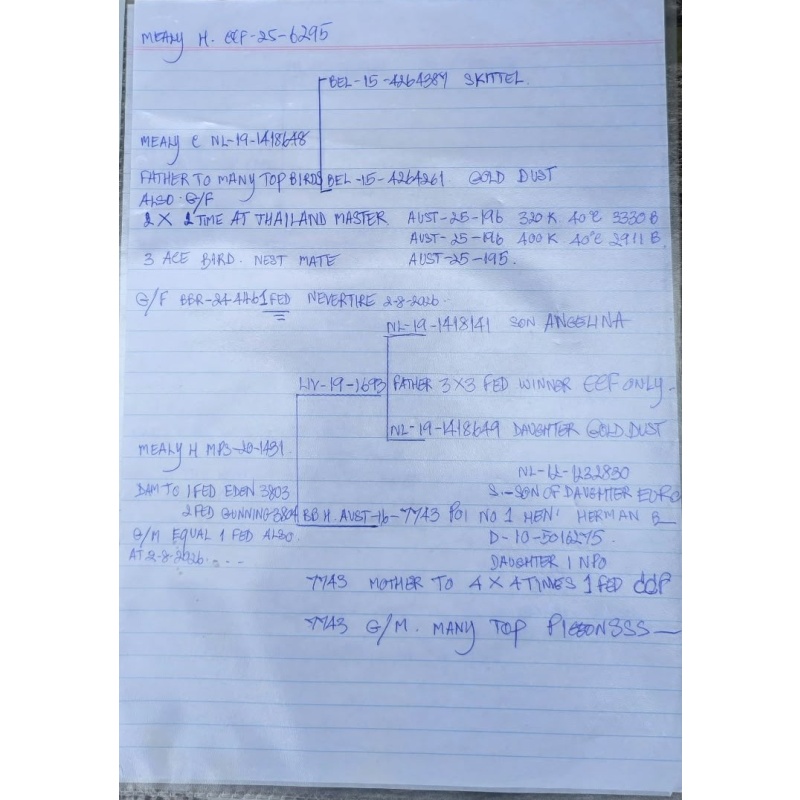 MEALY H. CCF-25-6295
BEL-15-4264387 SKITTEL.
MEALY C NL-19-1418648
FATHER TO MANY TOP BIRDS BEL-15-4264261 GOLD DUST
ALSO. G/F
2 X 2 TIME AT THAILAND MASTER. AUST-25-196 320 K 40°C 3330 B
AUST-25-196 400 K 40°C 2911 B.
3 ACE BIRD. NEST MATE AUST-25-195.
G/F 1 FED NEVERTIRE 2-8-2026..
NL-19-1418141 SON ANGELINA
LIV-19-1693 FATHER 3X3 FED WINNER CCF ONLY.
NL-19-1418649 DAUGHTER GOLD DUST
MEALY H MPS-20-1431
NL-12-1232830
DAM TO 1 FED EDEN 3803 S.-SON OF DAUGHTER EURO
2 FED GUNNING 3804 BB H. AUST-16-7743 POI NO 1 HEN' HERMAN B
G/M EQUAL 1 FED ALSO. D-10-5016275.
AT 2-8-2026.... DAUGHTER 1 NPO
7743 MOTHER TO 4 X 4 TIMES 1 FED
7743 G/M. MANY TOP